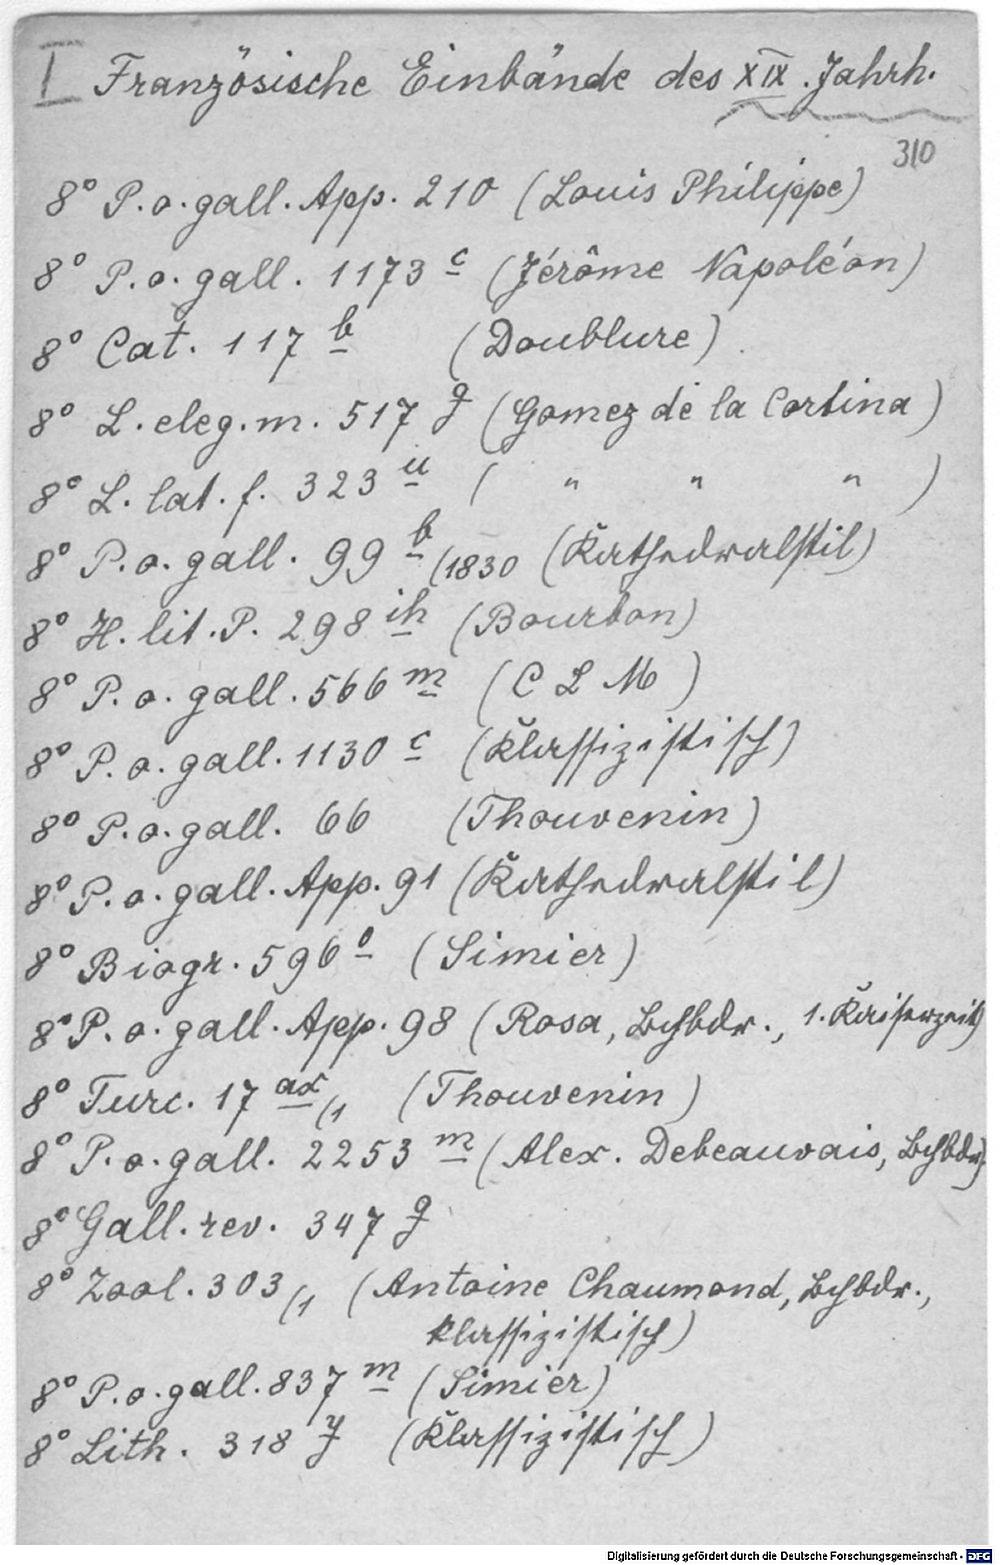 I Französische Einbände des XIX. Jahrh.
310
8° P.o.gall. App. 210 (Louis Philippe)
8° P.o.gall. 1173 c (Jérôme Napoléon)
8° Cat. 117 b (Doublure)
8° L.eleg.m. 517 g (Gomez de la Cortina)
8° L.lat.f. 323 u ( " " " )
8° P.o.gall. 99 b/1830 (Kathedralstil)
8° H.lit.P. 298 ih (Bourbon)
8° P.o.gall. 566 m (C L M)
8° P.o.gall. 1130 c (klassizistisch)
8° P.o.gall. 66 (Thouvenin)
8° P.o.gall. App. 91 (Kathedralstil)
8° Biogr. 596 o (Simier)
8° P.o.gall. App. 98 (Rosa, Bchbdr., 1. Kaiserzeit)
8° Turc. 17 ax/1 (Thouvenin)
8° P.o.gall. 2253 m (Alex. Debeauvais, Bchbdr)
8° Gall.rev. 347 g
8° Zool. 303/1 (Antoine Chaumond, Bchbdr.,
klassizistisch)
8° P.o.gall. 837 m (Simier)
8° Lith. 318 y (klassizistisch)
Digitalisierung gefördert durch die Deutsche Forschungsgemeinschaft - DFG